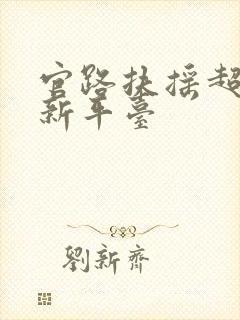 官路扶摇超
新平臺
劉新齊